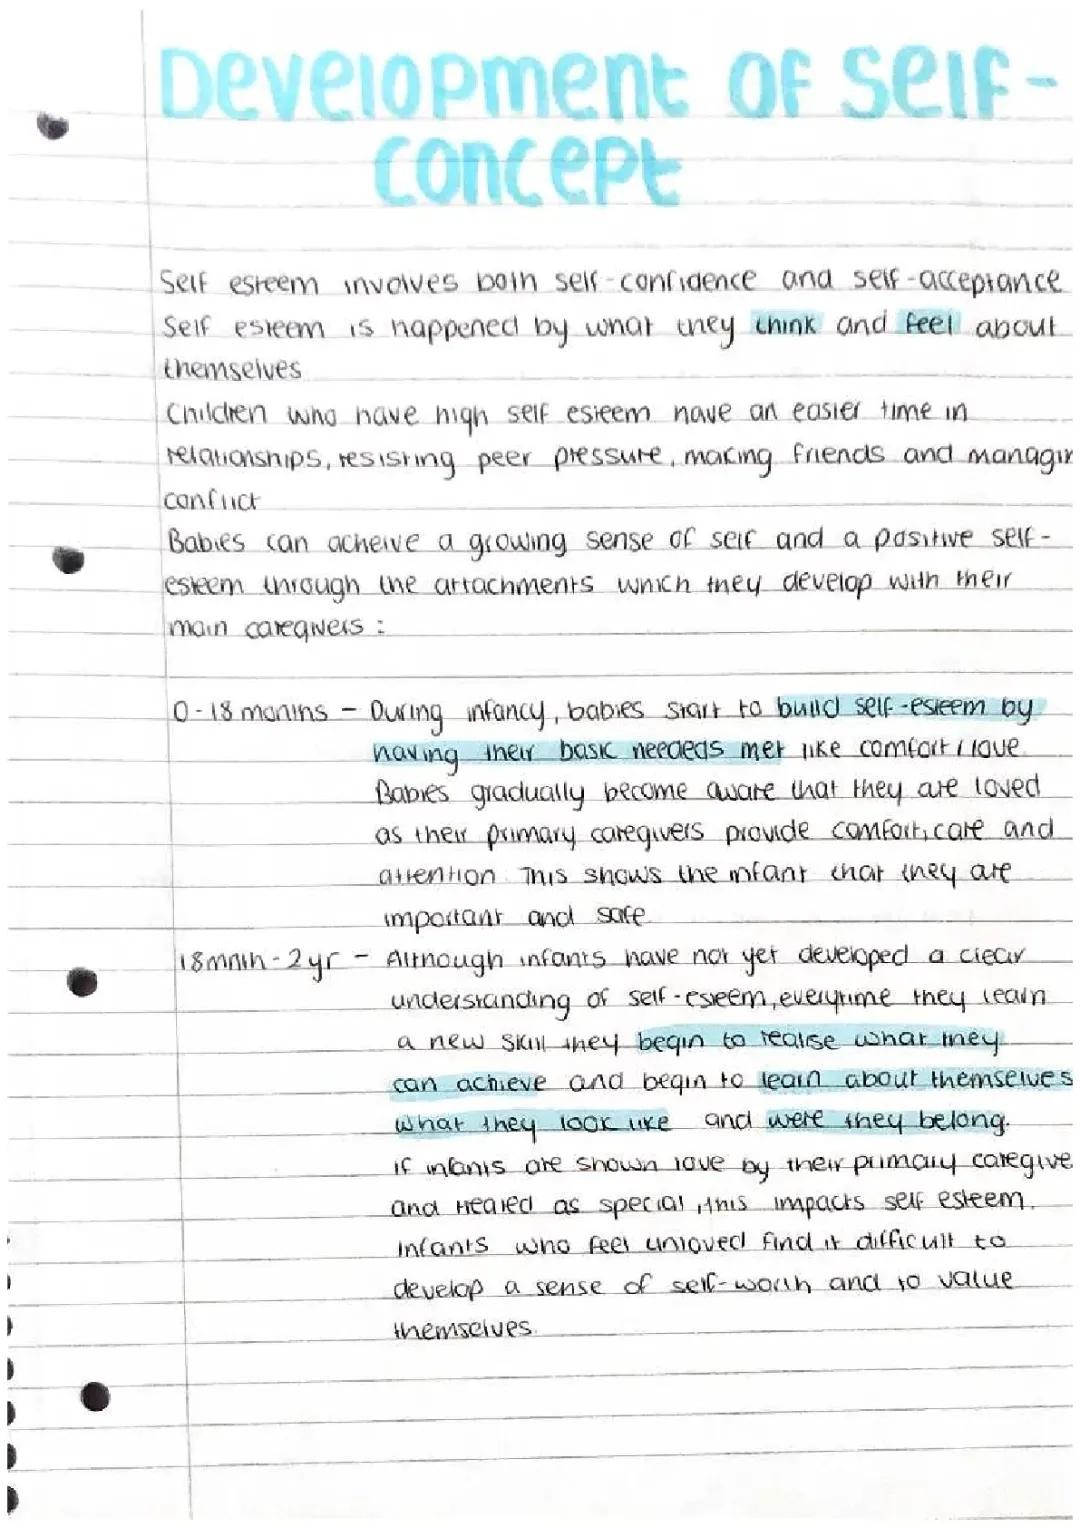 Development of Self-
concept
Self esteem involves both self-confidence and self-acceptance
Self esteem is happened by what they think and feel about
themselves
Children who have high self esteem have an easier time in
relationships, resisting peer pressure, making friends and managin
conflict
Babies can acheive a growing sense of self and a positive self-
esteem through the attachments which they develop with their
main caregivers :
0-18 months - During infancy, babies start to build self-esteem by
having their basic neededs met like comfort / love.
Babies gradually become aware that they are loved
as their primary caregivers provide comfort, care and
attention. This shows the infant that they are
important and safe.
18mnth-2yr - Although infants have not yet developed a clear
understanding of self-esteem, everytime they learn
a new skill they begin to realise what they
can achieve and begin to learn about themselves
what they look like and were they belong.
If infants are shown love by their primary caregive
and treated as special, this impacts self esteem.
Infants who feel unloved find it difficult to
develop a sense of self-worth and to value
themselves.